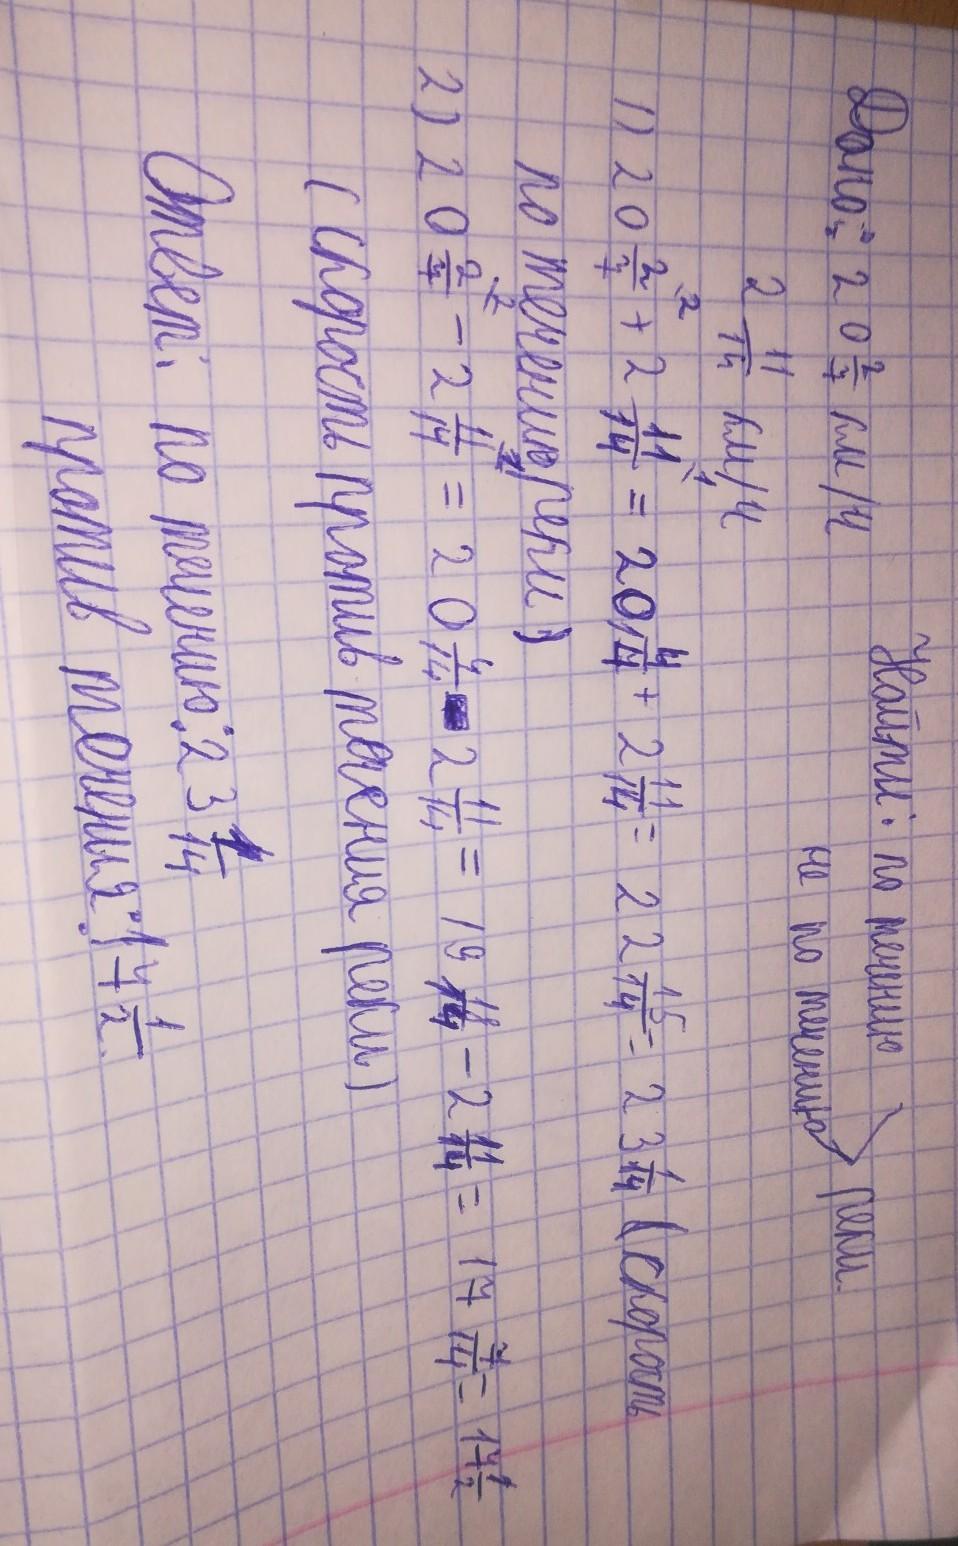 Дано: 20 2/7 км/ч Найти: по течению
2 11/14 км/ч не по течению > реки.
1) 20 2/7 \2 + 2 11/14 \1 = 20 4/14 + 2 11/14 = 22 15/14 = 23 1/14 (скорость
по течению реки)
2) 20 2/7 \2 - 2 11/14 \1 = 20 4/14 - 2 11/14 = 19 18/14 - 2 11/14 = 17 7/14 = 17 1/2
(скорость против течения реки)
Ответ: по течению: 23 1/14
против течения: 17 1/2.